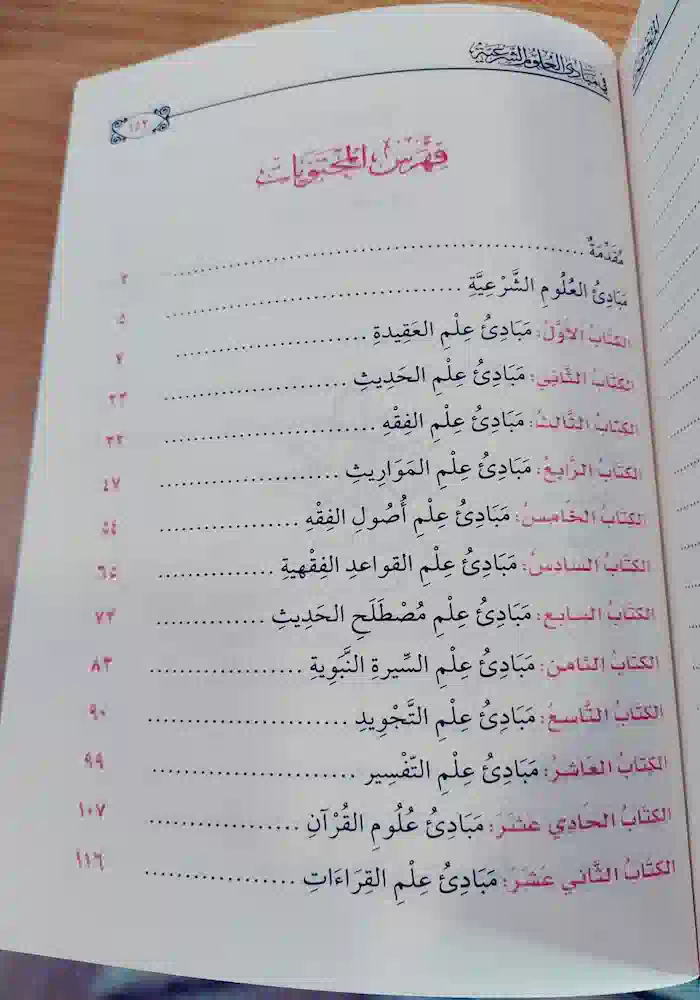 في مبادئ العلوم الشرعية
١٥٣
فهرس المحتويات
مُقَدِّمَةٌ ........................................ ٣
مَبَادِئُ العُلُومِ الشَّرْعِيَّةِ ........................ ٥
الكِتَابُ الأَوَّلُ: مَبَادِئُ عِلْمِ العَقِيدَةِ ........................ ٧
الكِتَابُ الثَّانِي: مَبَادِئُ عِلْمِ الحَدِيثِ ........................ ٢٣
الكِتَابُ الثَّالِثُ: مَبَادِئُ عِلْمِ الفِقْهِ ........................ ٣٢
الكِتَابُ الرَّابِعُ: مَبَادِئُ عِلْمِ المَوَارِيثِ ........................ ٤٧
الكِتَابُ الخَامِسُ: مَبَادِئُ عِلْمِ أُصُولِ الفِقْهِ .................... ٥٤
الكِتَابُ السَّادِسُ: مَبَادِئُ عِلْمِ القواعدِ الفِقْهِيةِ ............... ٦٥
الكِتَابُ السَّابِعُ: مَبَادِئُ عِلْمِ مُصْطَلَحِ الحَدِيثِ .............. ٧٣
الكِتَابُ الثَّامِنُ: مَبَادِئُ عِلْمِ السِّيرةِ النَّبَوِيةِ .................... ٨٣
الكِتَابُ التَّاسِعُ: مَبَادِئُ عِلْمِ التَّجْوِيدِ ........................ ٩٠
الكِتَابُ العَاشِرُ: مَبَادِئُ عِلْمِ التّفْسِير ........................ ٩٩
الكِتَابُ الحَادِي عَشَرَ: مَبَادِئُ عُلُومِ القُرْآنِ .................. ١٠٧
الكِتَابُ الثَّانِي عَشَرَ: مَبَادِئُ عِلْمِ القِرَاءَاتِ .................. ١١٦